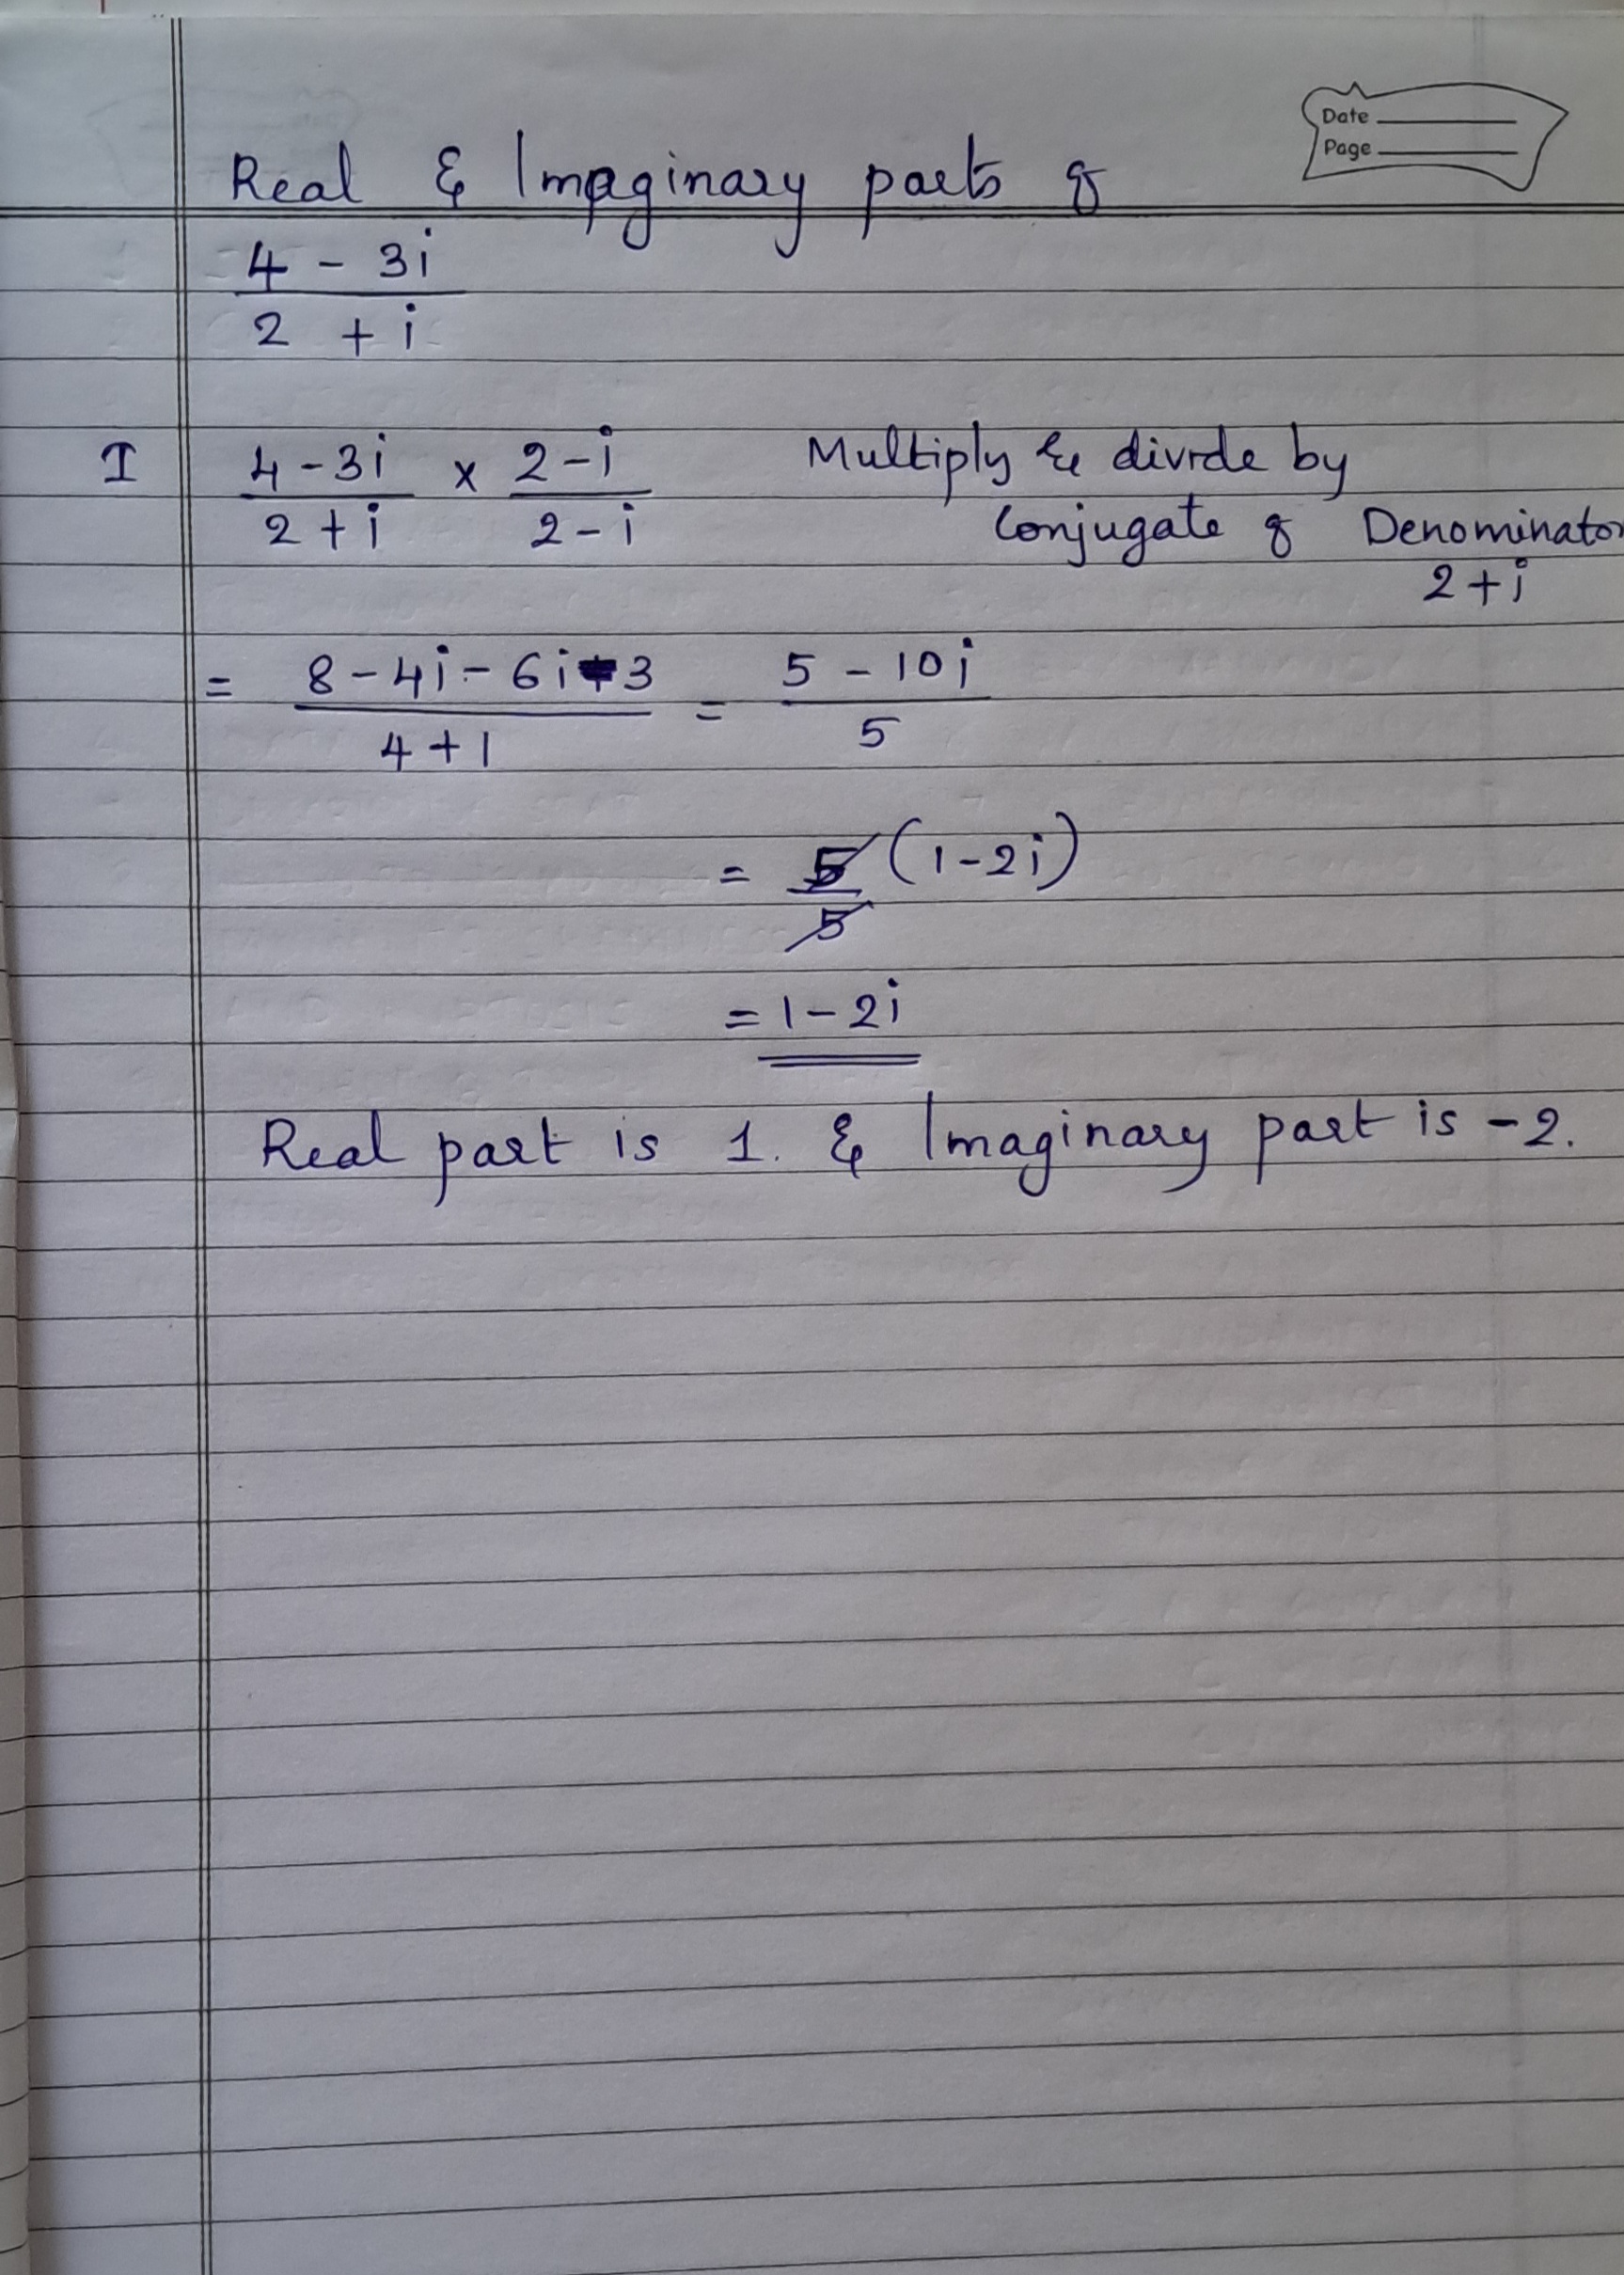 Date
Page
Real & Imaginary parts of
4 - 3i
2 + i
I 4-3i x 2-i Multiply & divide by
2+i 2-i Conjugate of Denominator
2+i
= 8-4i-6i-3 = 5-10i
4+1 5
= 5 (1-2i)
5
= 1-2i
Real part is 1. & Imaginary part is -2.